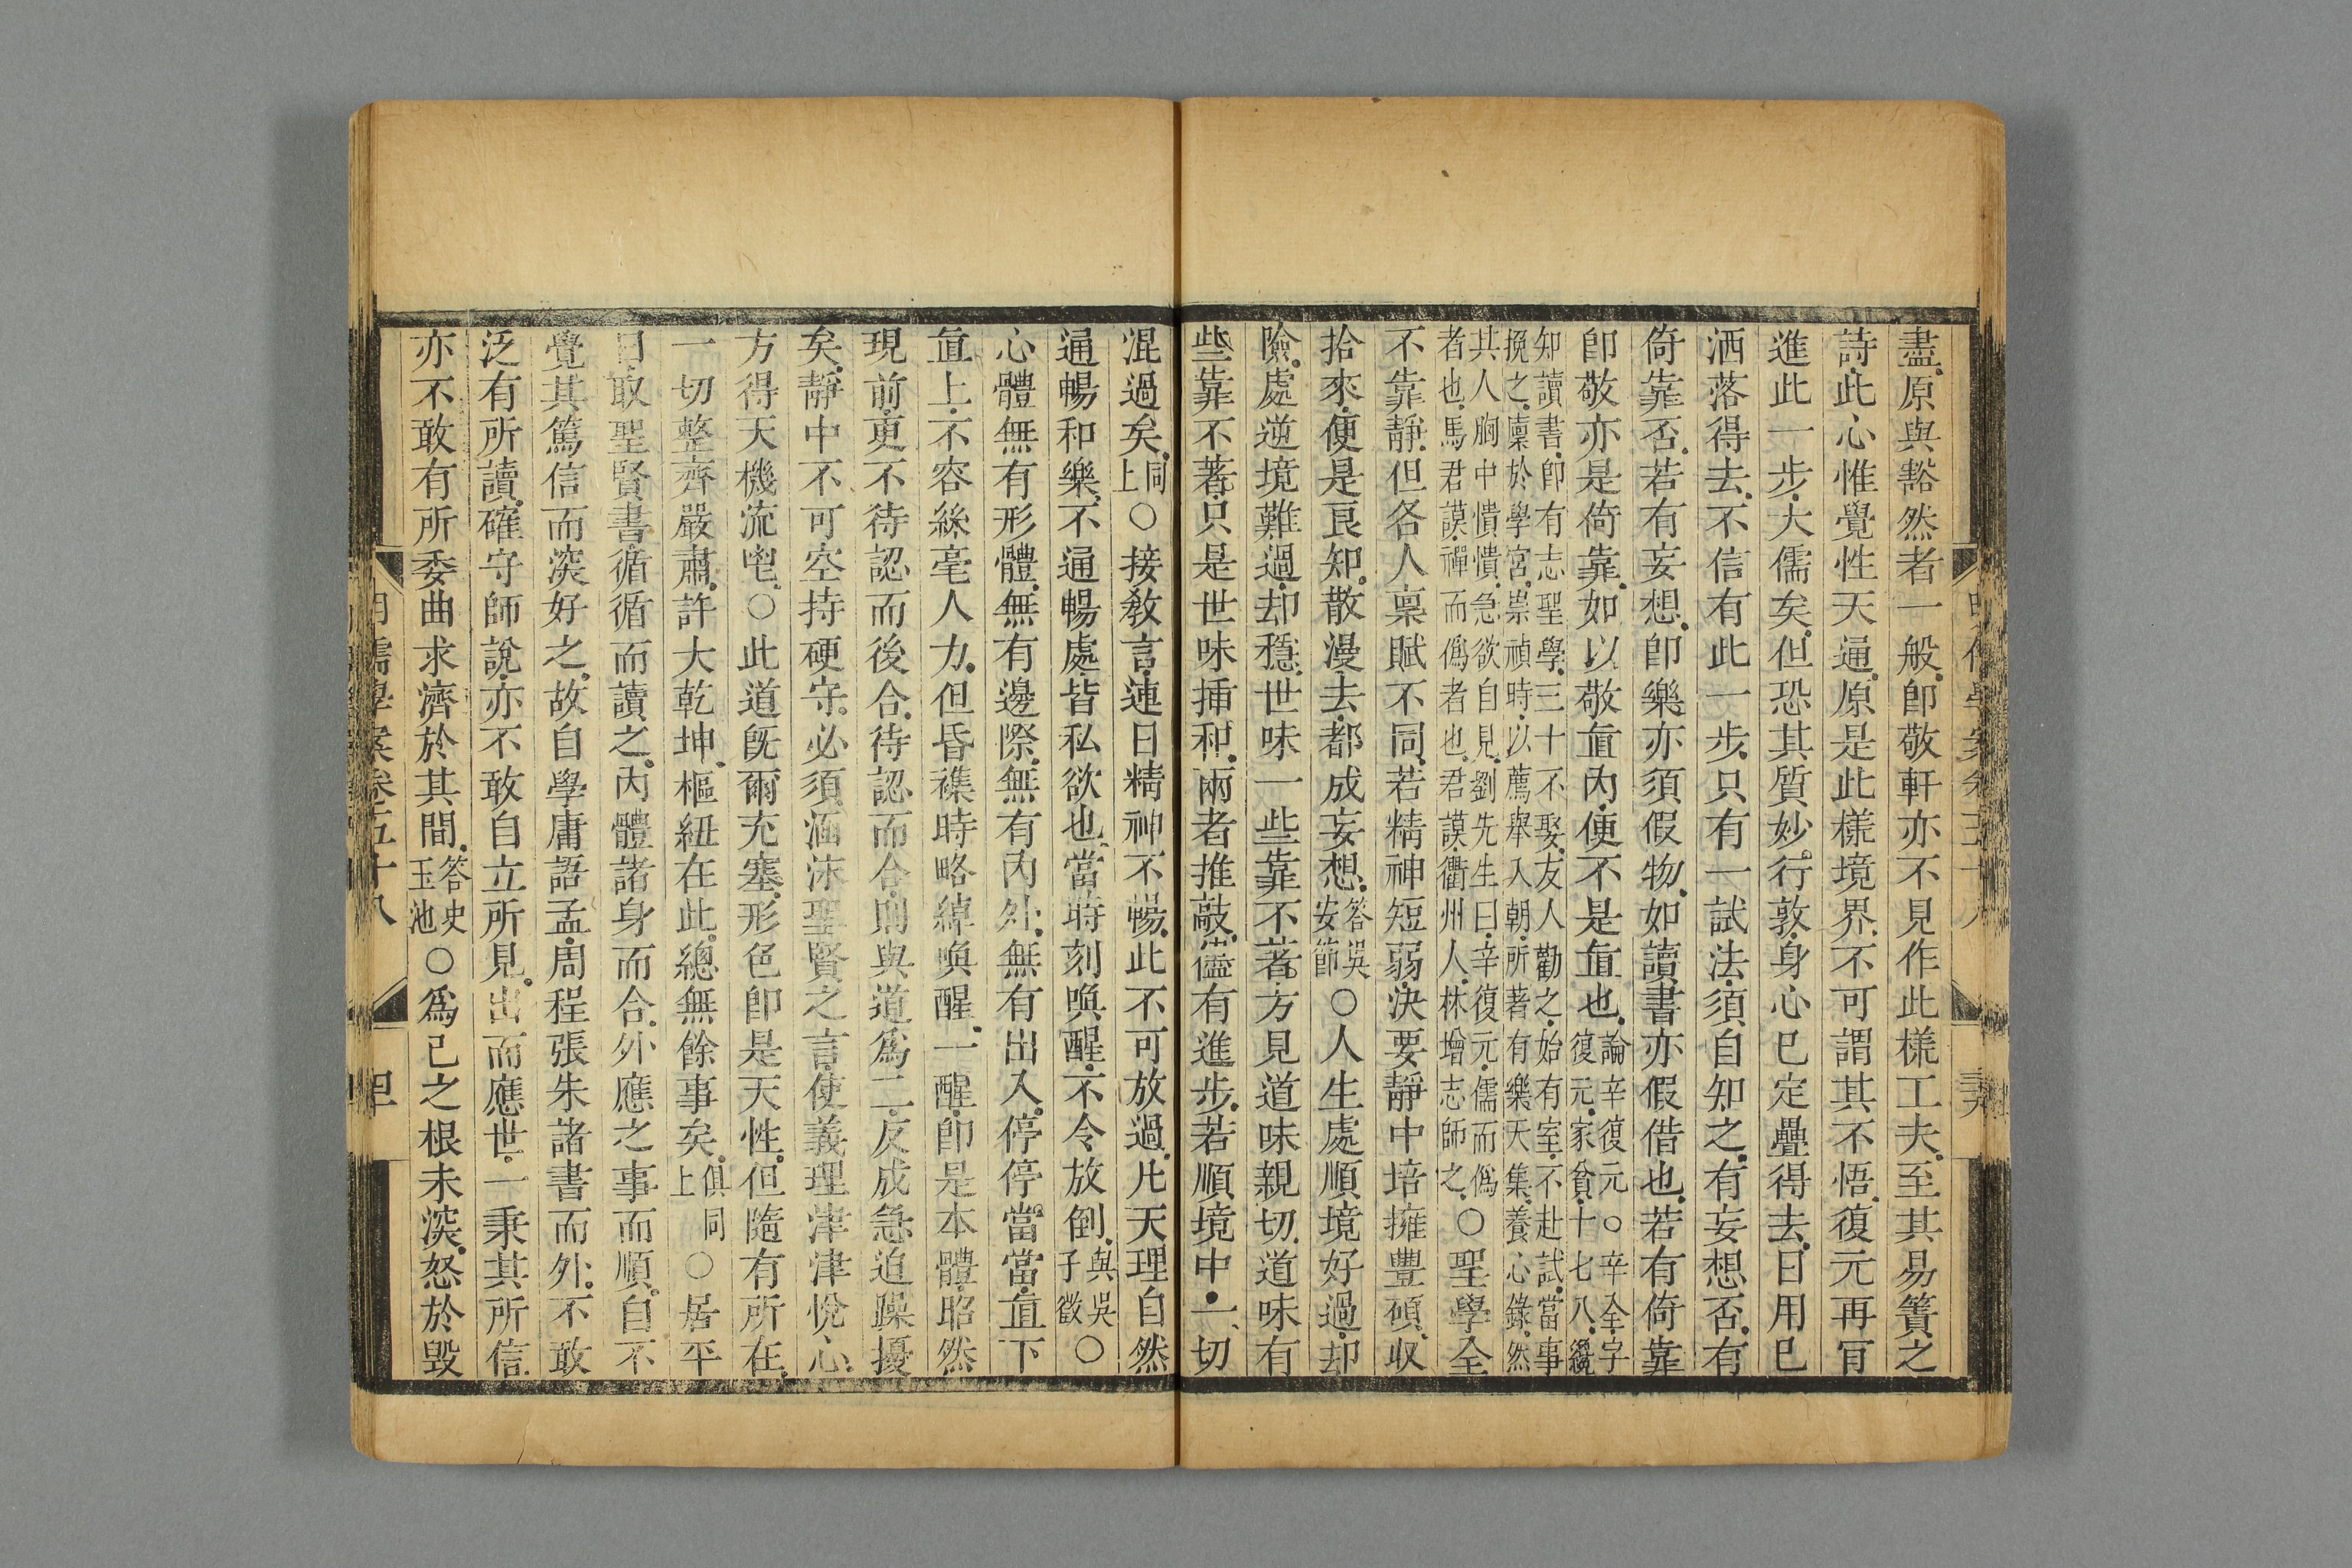 盡原與豁然者一般卽敬軒亦不見作此樣工夫至其易簀之
詩此心惟覺性天通原是此樣境界不可謂其不悟復元再肯
進此一步大儒矣但恐其質妙行敦身心已定疊得去日用已
洒落得去不信有此一步只有一試法須自知之有妄想否有
倚靠否若有妄想卽樂亦須假物如讀書亦假借也若有倚靠
卽敬亦是倚靠如以敬直內便不是直也論辛復元○辛全字
復元家貧十七八纔
知讀書卽有志聖學三十不娶友人勸之始有室不赴試當事
挽之廩於學宮崇禎時以薦舉入朝所著有樂天集養心錄然
其人胸中憒憒急欲自見劉先生曰辛復元儒而僞
者也馬君謨禪而僞者也君謨衢州人林增志師之○聖學全
不靠靜但各人稟賦不同若精神短弱決要靜中培擁豐碩收
拾來便是良知散漫去都成妄想答吳
安節○人生處順境好過却
險處逆境難過却穩世味一些靠不著方見道味親切道味有
些靠不著只是世味揷和兩者推敲儘有進步若順境中一切
混過矣同
上○接敎言連日精神不暢此不可放過凡天理自然
通暢和樂不通暢處皆私欲也當時刻喚醒不令放倒與吳
子徵○
心體無有形體無有邊際無有內外無有出入停停當當直下
直上不容絲毫人力但昏襍時略綽喚醒一醒卽是本體昭然
現前更不待認而後合待認而合則與道爲二反成急迫躁擾
矣靜中不可空持硬守必須涵泳聖賢之言使義理津津悅心
方得天機流鬯○此道旣爾充塞形色卽是天性但隨有所在
一切整齊嚴肅許大乾坤樞紐在此總無餘事矣俱同
上○居平
日取聖賢書循循而讀之內體諸身而合外應之事而順自不
覺其篤信而深好之故自學庸語孟周程張朱諸書而外不敢
泛有所讀確守師說亦不敢自立所見出而應世一秉其所信
亦不敢有所委曲求濟於其間答史
玉池○爲己之根未深怒於毀
明儒學案卷五十八